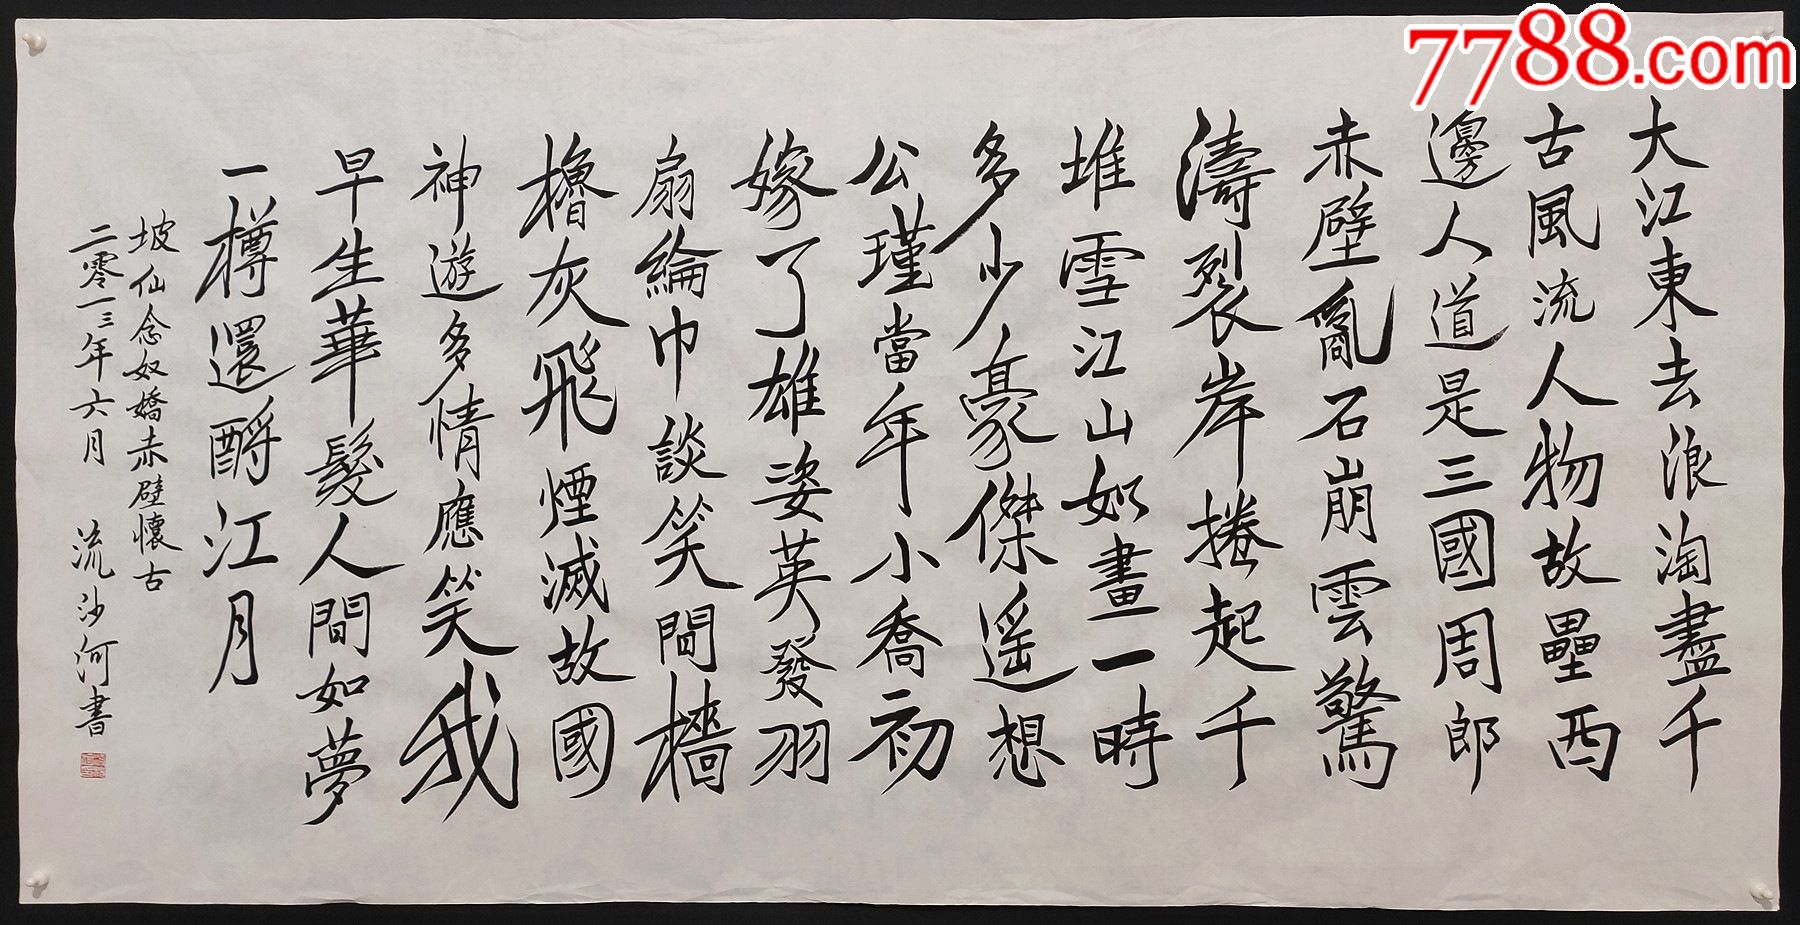 7788.com
大江東去浪淘盡千
古風流人物故壘西
邊人道是三國周郎
赤壁亂石崩雲驚
濤裂岸捲起千
堆雪江山如畫一時
多少豪傑遥想
公瑾當年小喬初
嫁了雄姿英發羽
扇綸巾談笑間檣
櫓灰飛煙滅故國
神遊多情應笑我
早生華髮人間如夢
一樽還酹江月
坡仙念奴嬌赤壁懷古
二零一三年六月 流沙河書